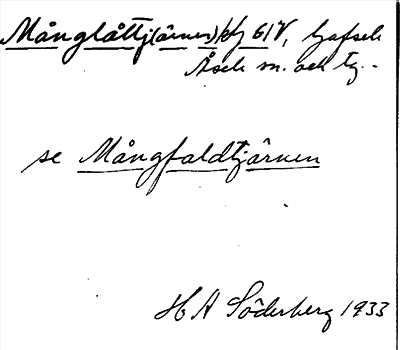 Månglåttj(ärnen) kbj 61V, Gafsele
Åsele sn. och tg.
se Mångfaldtjärnen
H A Söderberg 1933